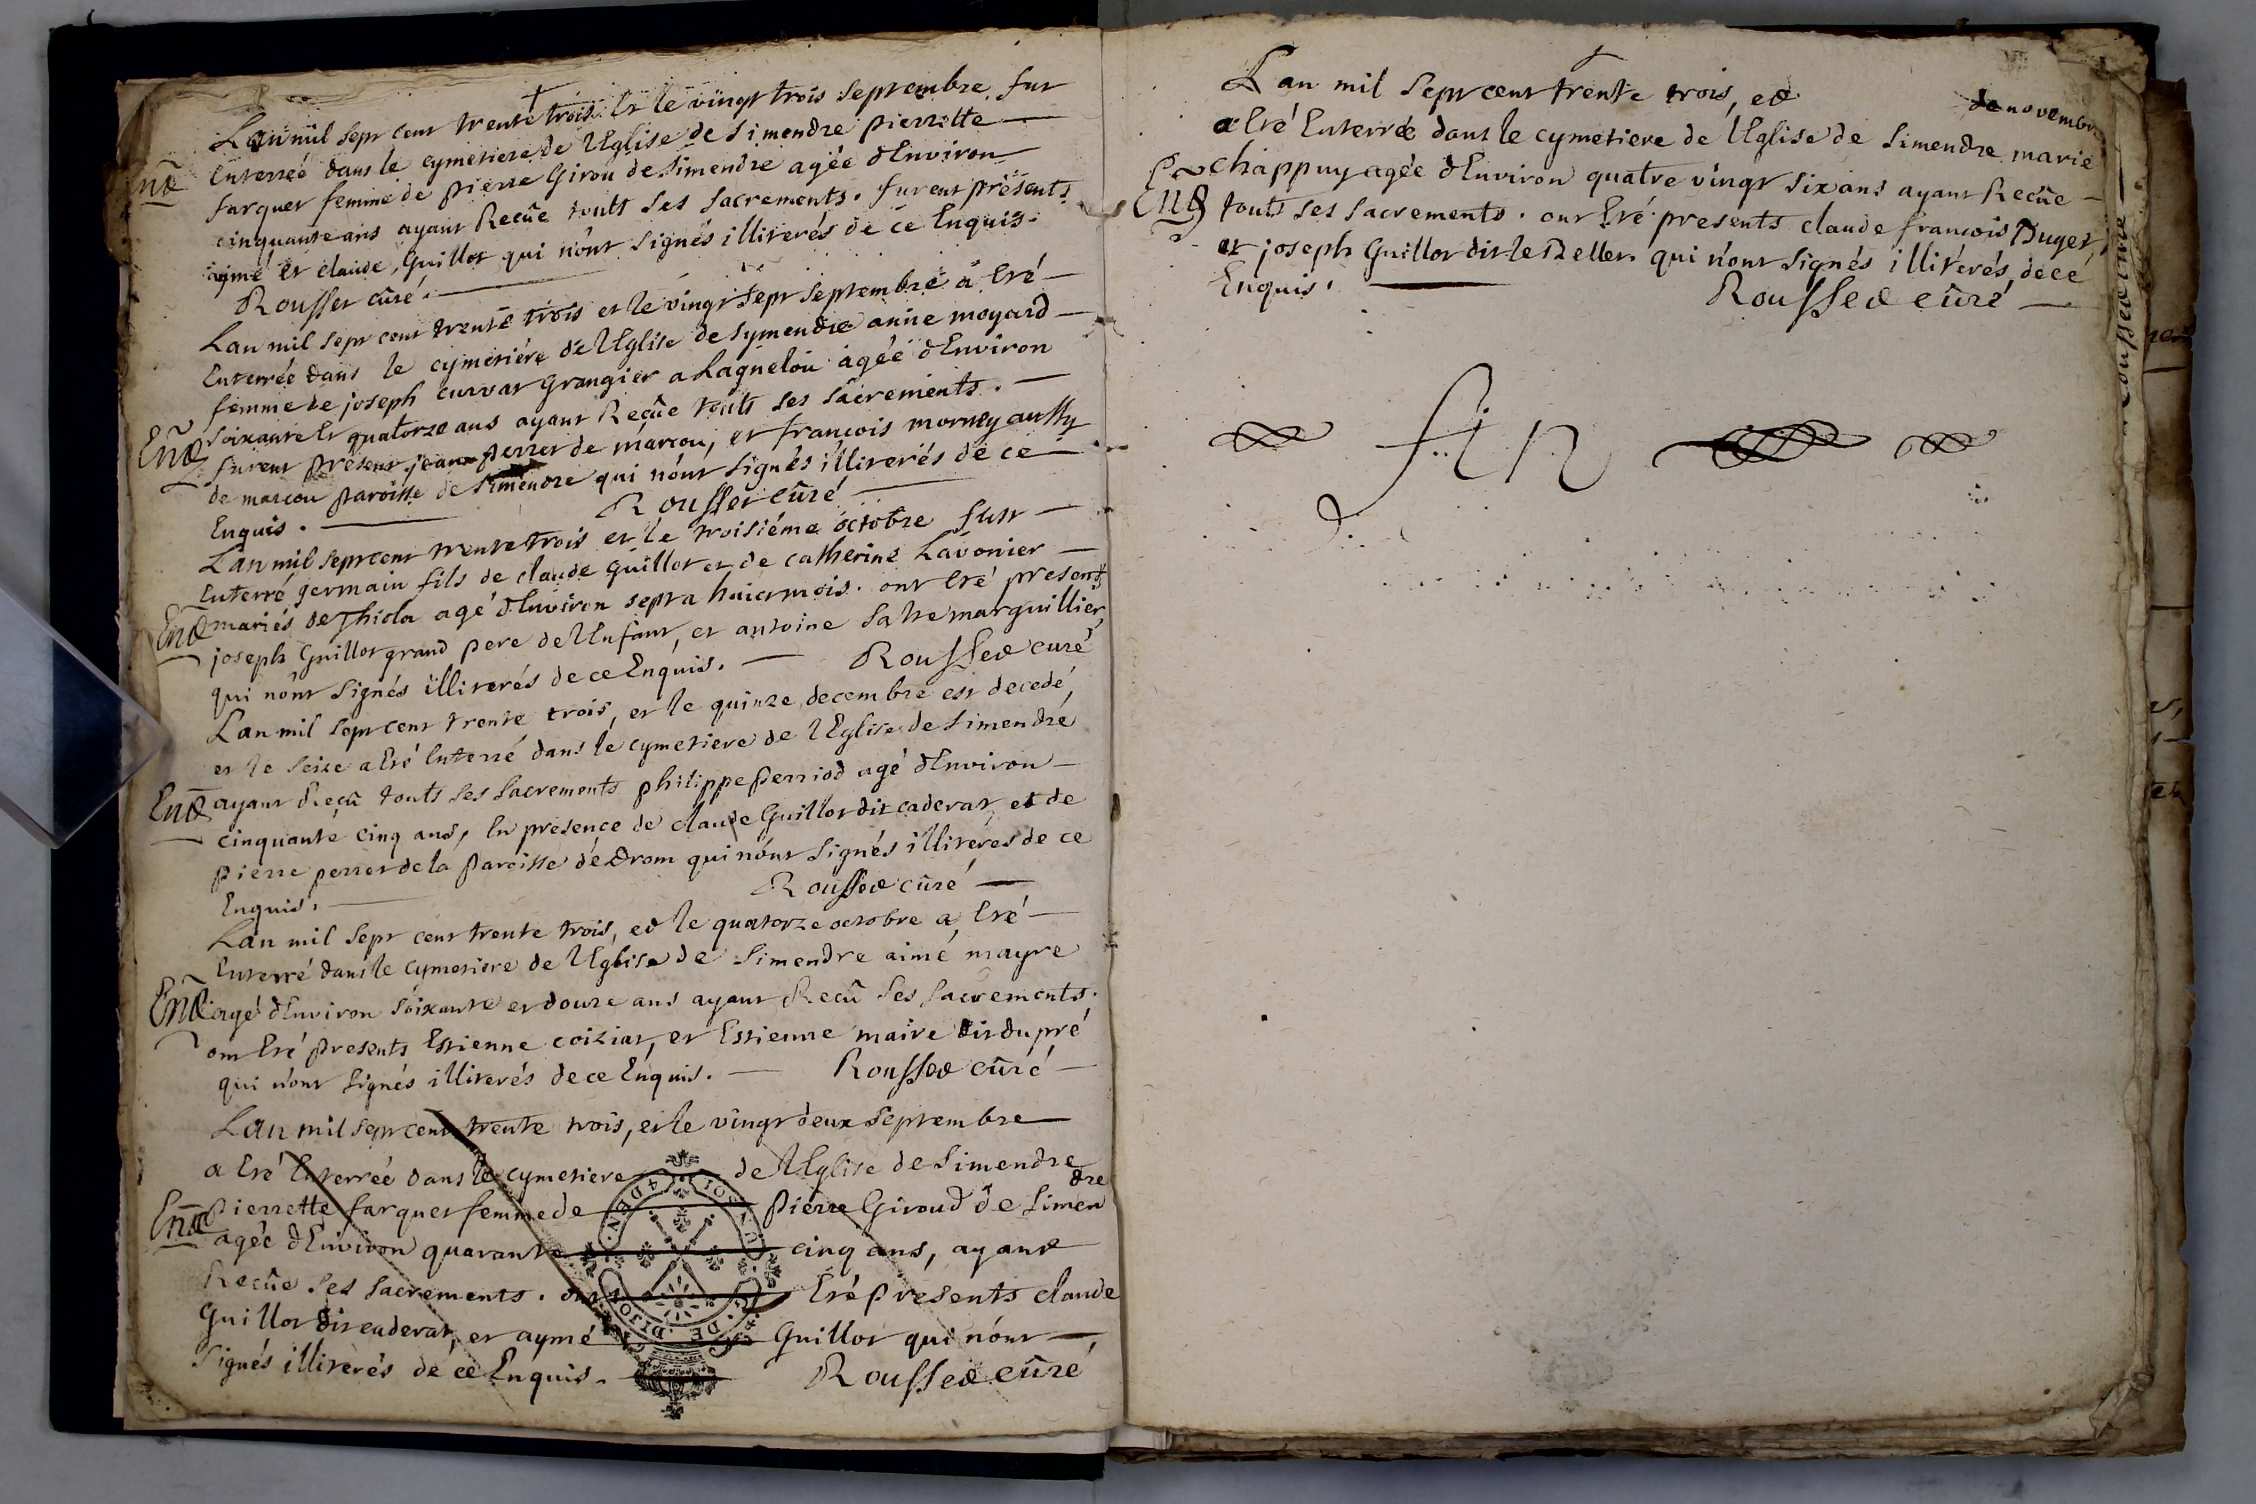 Lan mil sept cent trente trois et le vingt trois septembre fut
Enterréé dans le cymetiere de l'Eglise de Simendre pierrette
farquet femme de pierre Girou de Simendre agéé d'Environ
cinquante ans ayant Recûe touts ses sacrements. furent présents
aymé et claude Guillot qui n'ônt signés illiterés de ce Enquis.
Rousset cûré.
Lan mil sept cent trente trois et le vingt sept septembre a Eté
Enterréé dans le cymetiére de l'Eglise de Symendre anne moyard
femme de joseph curvat Grangier a Lagnelou agéé d'Environ
soixante Et quatorze ans ayant Reçûe touts ses sacrements.
Ene furent présent jean perret de marcou, et francois morney aussy
de marcou paroisse de Simendre qui n'ônt signés illiterés de ce
Enquis.
Rousset cûré
Lan mil sept cent trente trois et le troisiéme octobre fust
Enterré germain fils de claude Guillot et de catherine Lavonier
Ene mariés de Thiola agé d'Environ sept a huict mois. ont Eté presents
joseph Guillot grand pere de l'Enfant, et antoine Salve marguillier
qui n'ônt signés illiterés de ce Enquis. Rousset curé
Lan mil sept cent trente trois, et le quinze decembre est decedé,
et le seize a Eté Enterré dans le cymetiere de l'Eglise de Simendre
Ene ayant Reçû touts ses sacrements philippe perriod agé d'Environ
cinquante cinq ans, En presence de claude Guillot dit caderat, et de
pierre perret de la paroisse de Drom qui n'ônt signés illiterés de ce
Enquis.
Rousset cûré
Lan mil sept cent trente trois, et le quatorze octobre a Eté
Enterré dans le cymetiere de l'Eglise de Simendre aimé mayre
Ene agé d'Environ soixante et douze ans ayant Recû ses sacrements.
ont Eté presents Estienne coiziat, et Estienne maire dit dupré
qui n'ont signés illiterés de ce Enquis. Rousset cûré
Lan mil sept cent trente trois, et le vingt deux septembre
a Eté Enterréé dans le cymetiere de l'Eglise de Simendre
Ene pierrette farquet femme de pierre Giroud de Simen
dre
agéé d'Environ quarante cinq ans, ayant
Recûe ses sacrements. ont Eté presents claude
Guillot dit caderat, et aymé Guillot qui n'ônt
signés illiterés de ce Enquis.
Rousset cûré
DE DIJON
Lan mil sept cent trente trois, et
de novembre
a Eté Enterréé dans le cymetiere de l'Eglise de Simendre marie
chappuy agéé d'Environ quatre vingt six ans ayant Recûe
Ene touts ses sacrements. ont Eté presents claude francois Duget,
et joseph Guillot dit le Rellet qui n'ont signés illiterés de ce
Enquis.
Rousset cûré
fin